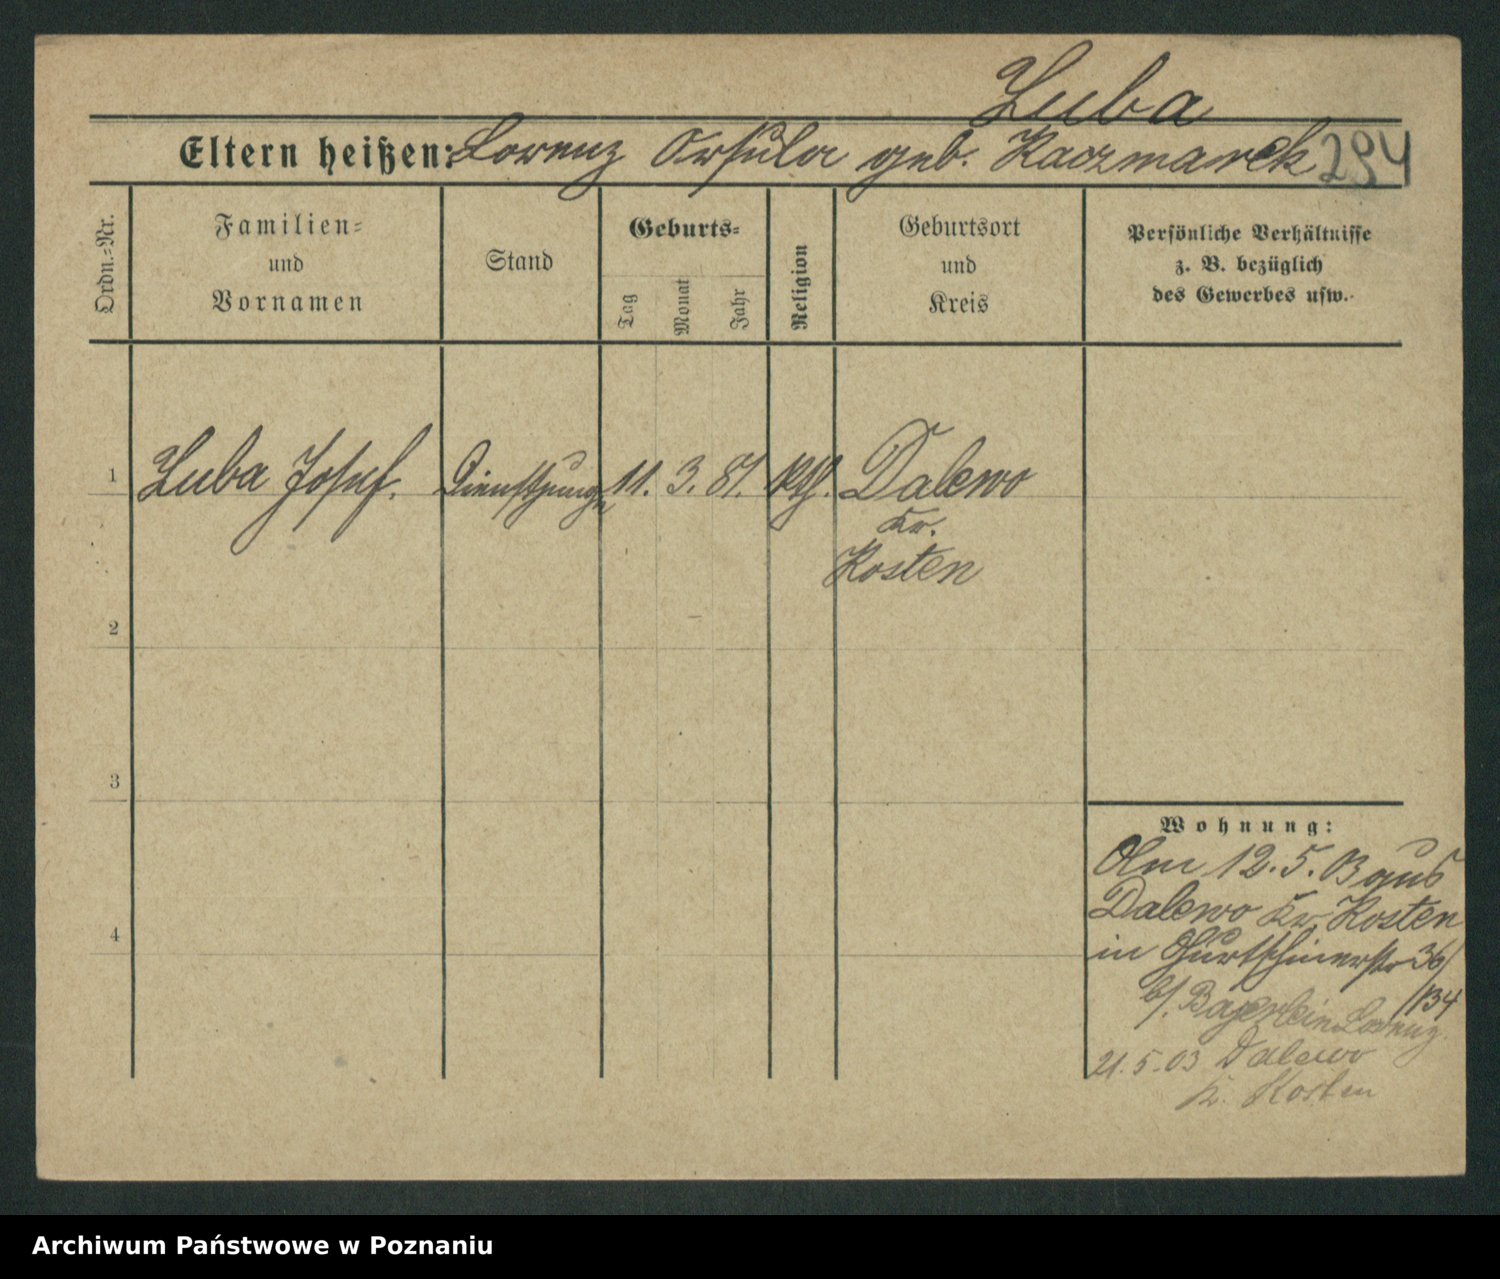 Luba
Eltern heißen: Lorenz Orsula geb. Kaczmarek 294
Ordn.-Nr.
Familien-
und
Vornamen
Stand
Geburts-
Tag
Monat
Jahr
Religion
Geburtsort
und
Kreis
Persönliche Verhältnisse
z. B. bezüglich
des Gewerbes usw.
1 Luba Josef. Dienstjunge 11. 3. 87. kth. Dalewo
Kr.
Kosten
2
3
4
Wohnung:
Am 12.5.03 aus
Dalewo Kr. Kosten
in Gurtschinerstr 36/
/134
b/. Bajerlein Lorenz.
21.5.03 Dalewo
K. Kosten
Archiwum Państwowe w Poznaniu